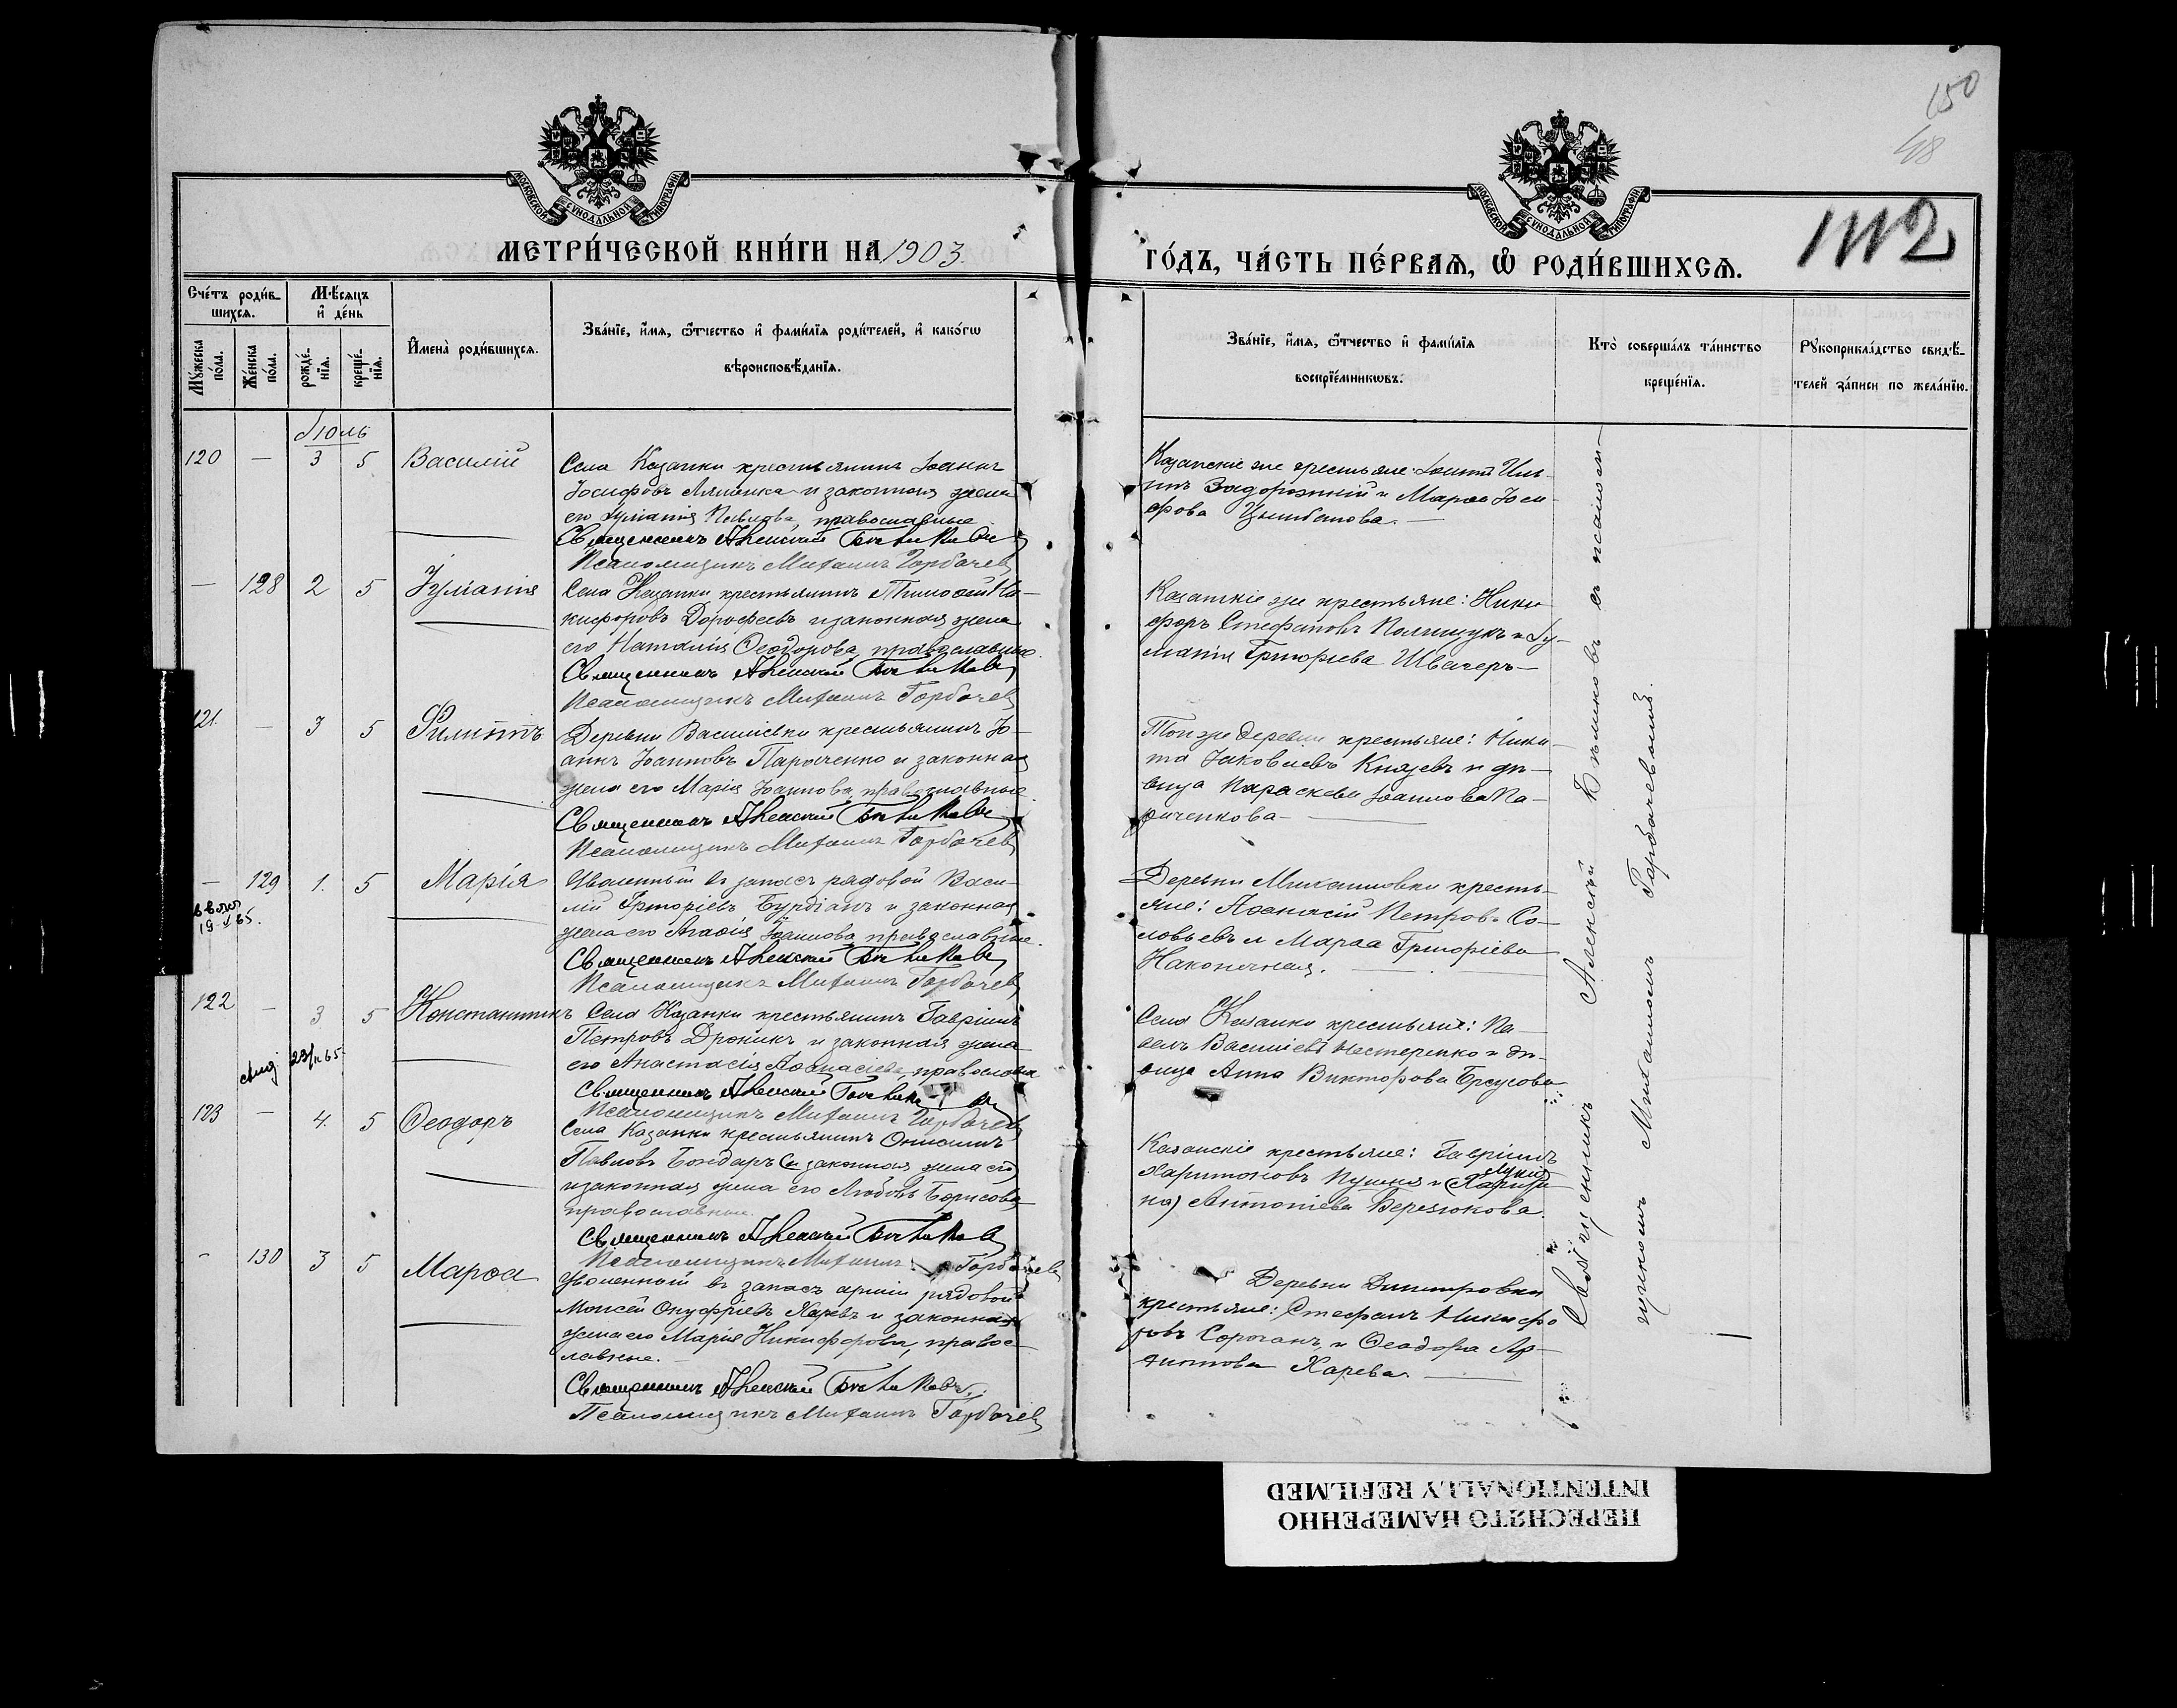 150
48
МОСКОВСКОЙ СУНОДАЛЬНОЙ ТИПОГРАФІИ
МОСКОВСКОЙ СУНОДАЛЬНОЙ ТИПОГРАФІИ
МЕТРИ́ЧЕСКОЙ КНИ́ГИ НА 1903
ГО́ДЪ, ЧА́СТЬ ПЕ́РВАѦ, Ѡ҆ РОДИ́ВШИХСѦ.
Сче́тъ роди́в-
шихсѧ.
Мꙋ́жеска по́ла.
Же́нска по́ла.
Мѣ́сѧцъ
и҆ де́нь
рожде́-
нїѧ.
креще́-
нїѧ.
И҆мена̀ роди́вшихсѧ.
Зва́нїе, и҆́мѧ, ѻ҆́тчество и҆ фами́лїѧ роди́телей, и҆ како́гѡ
вѣроисповѣ́данїѧ.
Зва́нїе, и҆́мѧ, ѻ҆́тчество и҆ фами́лїѧ
воспрїе́мникѡвъ.
Кто̀ соверша́лъ та́инство
креще́нїѧ.
Рꙋкоприкла́дство свидѣ́-
телей за́писи по жела́нїю.
Іюль
120 — 3 5 Василій
Села Казанки крестьянинъ Іоаннъ
Іосифовъ и законная жена
его Іуліанія Павлова, православные
Священникъ Алексій
Псаломщикъ Михаилъ Горбачев
Казанскіе же крестьяне: Іоаннъ Иль-
инъ Задорожній и Марѳа Іоси-
фова Цымбалова. —
— 128 2 5 Іуліанія
Села Казанки крестьянинъ Тимоѳей Ни-
кифоровъ Дорофеевъ и законная жена
его Наталія Ѳеодорова, православные.
Священникъ Алексій
Псаломщикъ Михаилъ Горбачев
Казанскіе же крестьяне: Ники-
форъ Стефановъ Полищукъ и Іу-
ліанія Григоріева Швачеръ —
121 — 3 5 Филиппъ
Деревни Васильевки крестьянинъ Іо-
аннъ Іоанновъ Парыченко и законная
жена его Марія Іоаннова, православные
Священникъ Алексій
Псаломщикъ Михаилъ Горбачев
Той же деревни крестьяне: Ники-
та Іаковлевъ Князевъ и дѣ-
вица Параскева Іоаннова Па-
риченкова —
— 129 1. 5 Марія
19 65.
Уволенный въ запасъ рядовой Васи-
лій Григоріевъ Бурдіанъ и законная
жена его Агаѳія Іоаннова, православные.
Священникъ Алексій
Псаломщикъ Михаилъ Горбачев
Деревни Михайловки кресть-
яне: Аѳанасій Петровъ Со-
ловьевъ и Марѳа Григоріева
Наконечная. —
122 — 3 5 Константинъ
23/ 65
Села Казанки крестьянинъ Гавріилъ
Петровъ Дроникъ и законная жена
его Анастасія Аѳанасіева, православн
Священникъ Алексій
Псаломщикъ Михаилъ Горбачев
Села Казанки крестьяне: Па-
велъ Василіевъ Нестеренко и дѣ-
вица Анна Викторова Брсусова
123 — 4. 5 Ѳеодоръ
Села Казанки крестьянинъ
Павловъ Бондарь (и законная жена его)
и законная жена его Любовь Борисова
православные.
Священникъ Алексій
Псаломщикъ Михаилъ Горбачев
Казанскіе крестьяне: Гавріилъ
Харитоновъ и
на) Антоніева Березюкова.
— 130 3 5 Марѳа
Уволенный въ запасъ арміи рядовой
Моисей Онуфріевъ Харевъ и законная
жена его Марія Никифорова, право-
славные.
Священникъ Алексій
Псаломщикъ Михаилъ Горбачев
Деревни Димитровки
крестьяне: Стефанъ Никифо-
ровъ Сороганъ и Ѳеодора
Харева. —
Священникъ Алексій съ псалом-
щикомъ Михаиломъ Горбачевымъ.
ПЕРЕСНЯТО НАМЕРЕННО
INTENTIONALLY REFILMED